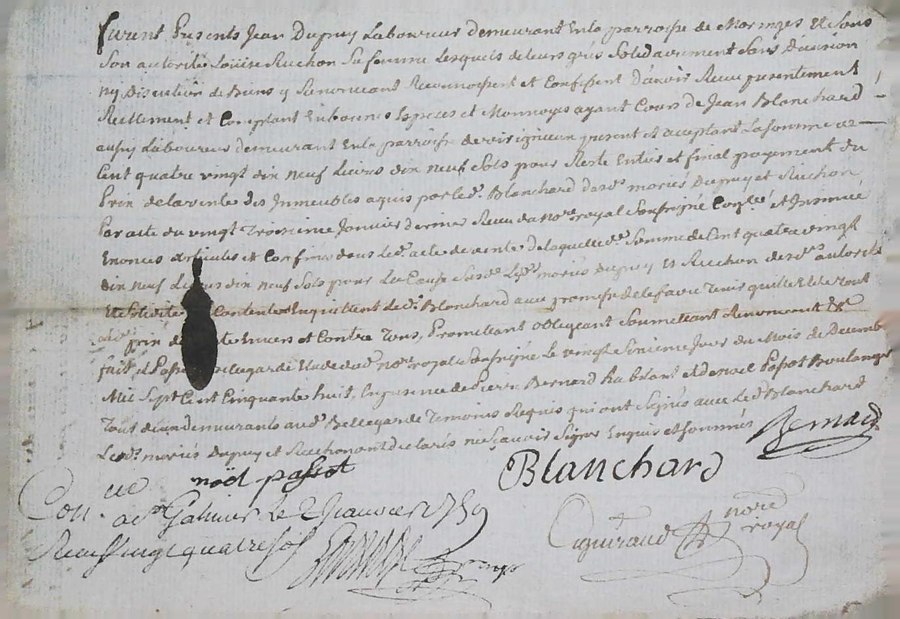 furent presents Jean Dupuy Laboureur demeurant en la parroisse de Maringes et sous
son autorité Louise Ruchon sa femme lesquels de leurs grés solidairement sans division
ny discution de biens y renonceant Reconnoissent et confessent d'avoir Receu presentement
Reellement et comptant en bonnes Especes et Monnoyes ayant cours de Jean Blanchard
aussy Laboureur demeurant en la parroisse de virigneux present et aceptant la somme de
Cent quatre vingt dix neuf livres dix neuf sols pour Reste Entier et final payement du
Prix de la vente des Immeubles aquis par led. Blanchard desd. mariés Dupuy et Ruchon
Par acte du vingt Troisieme Janvier dernier Receu du no.re royal soussigné Con.lé et Insinué
enoncés articulés et confinés dans led. acte de vente de laquelle d. somme de Cent quatre vingt
dix neuf Livres dix neuf sols pour La Cause susd. Les d. mariés Dupuy et Ruchon desd. autorités
et solidités Contents En quittent led. Blanchard avec promesse de le faire Tenir quitte de tout
prix Envers et Contre Tous, Promettant obligeant soumettant Renonceant &a
fait et Passé Bellegarde Etude dud. no.re royal soussigné le vingt sixieme Jour du Mois de Decemb
Mil Sept Cent Cinquante huit, En presence de Pierre Bernard habitant et de noel Passot Boulanger
Tous deux demeurants aud. Bellegarde Temoins Requis qui ont signés avec Led. Blanchard
Lesd. mariés Dupuy et Ruchon ont declarés ne sçavoir signer Enquis et sommés
Bernard
noël passot Blanchard
Con. a St Galmier le 2 Janvier 1759
Receu vingt quatre sols
Cuguiraud no.re royal